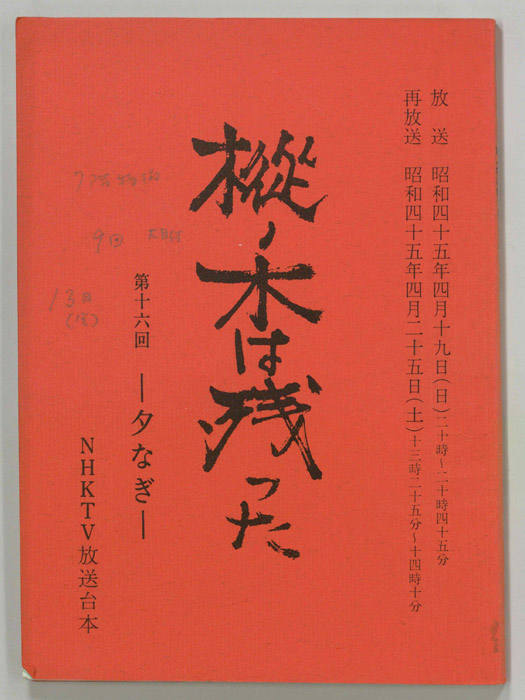 放送 昭和四十五年四月十九日(日)二十時~二十時四十五分
再放送 昭和四十五年四月二十五日(土)十三時二十五分~十四時十分
樅ノ木は残った
第十六回 ―夕なぎ―
NHKTV放送台本
9回
13日